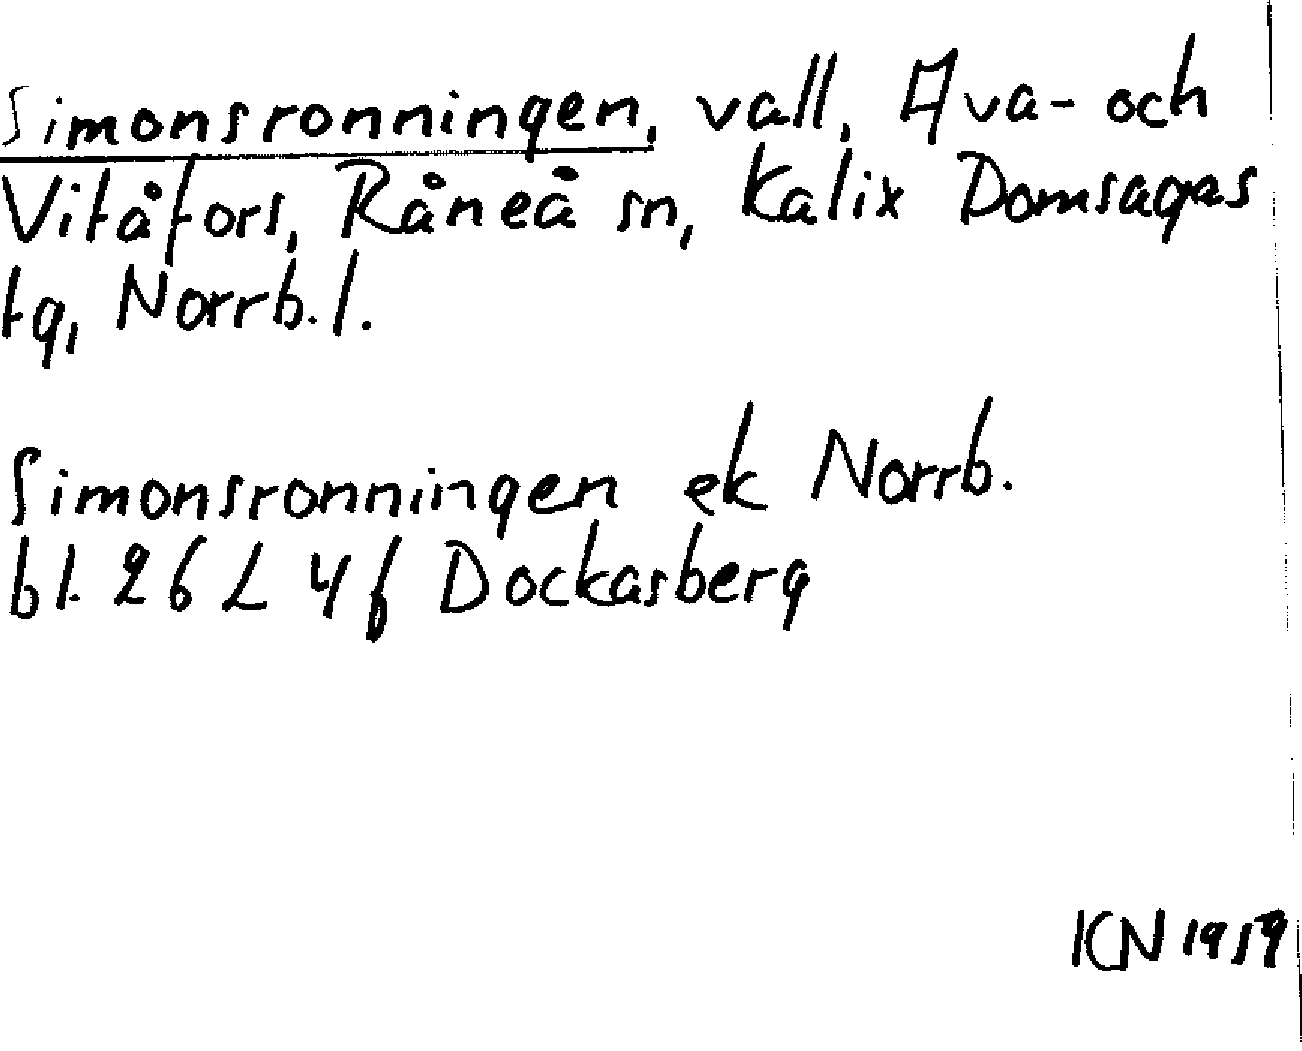 Simonsronningen, vall, Ava- och
Vitåfors, Råneå sn, Kalix Domsagas
tg, Norrb. l.
Simonsronningen ek Norrb.
bl. 26 L 4 f Dockasberg
KN 1959